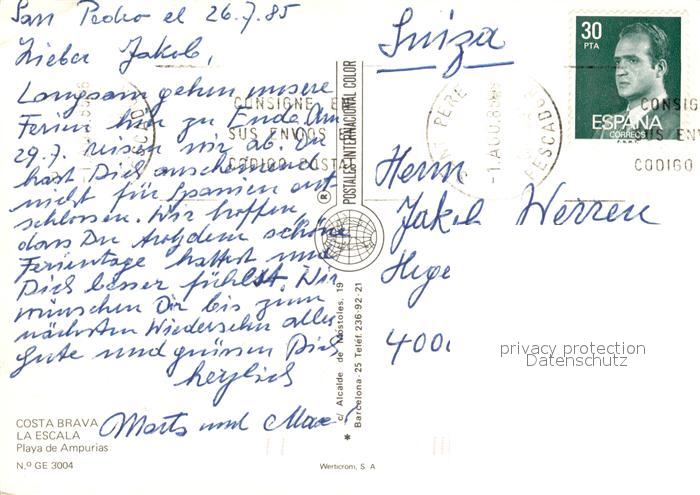 San Pedro el 26.7.85
Lieber Jakob,
Langsam gehen unsere
Ferien hier zu Ende. Am
29.7. reisen wir ab. Du
hast Dich anscheinend
nicht für Spanien ent-
schlossen. Wir hoffen,
dass Du trotzdem schöne
Ferientage hattest und
Dich besser fühlst. Wir
wünschen Dir bis zum
nächsten Wiedersehn alles
Gute und grüssen Dich
herzlich
Marts und Max
COSTA BRAVA
LA ESCALA
Playa de Ampurias
N.º GE 3004
POSTALES INTERNACIONAL COLOR
®
c/ Alcalde de Mostoles, 19
* Barcelona-25 Teléf. 236-92-21
Werticrom, S. A
Suiza
30
PTA
ESPAÑA
CORREOS
F.N.M.T.
CONSIGNE EN
SUS ENVIOS
CODIGO POSTAL
PERE PESCADOR
-1.AGO
CONSIG
SUS ENV
CODIGO
Herrn
Jakob Werren
Hege
400
privacy protection
Datenschutz